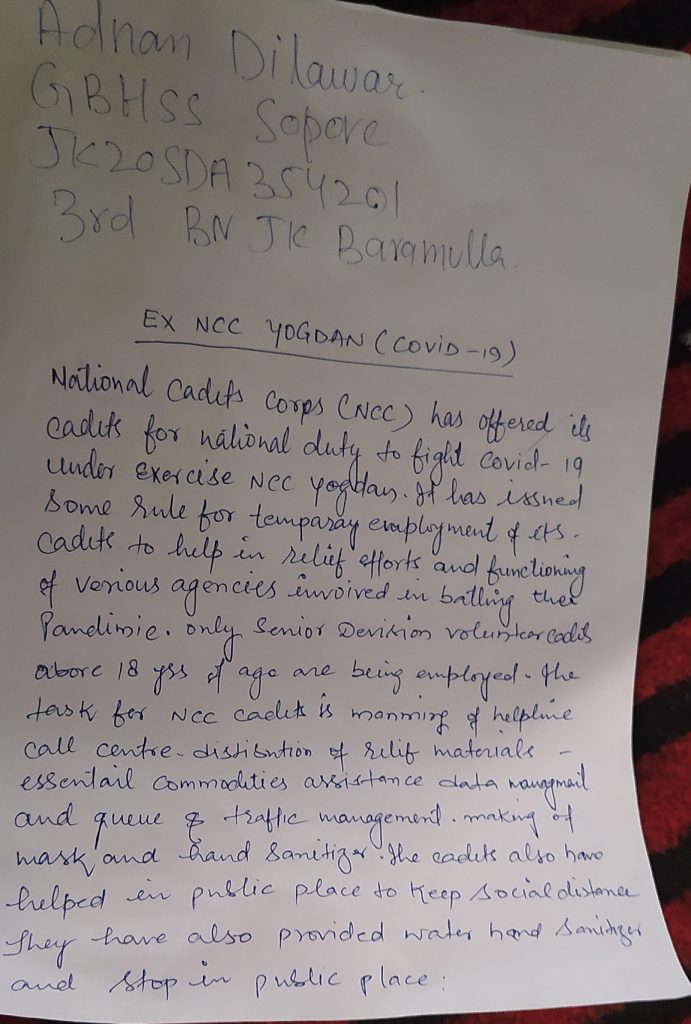 Adnan Dilawar.
GBHSS Sopore
JK20SDA354201
3rd BN JK Baramulla.
EX NCC YOGDAN (COVID-19)
National Cadets Corps (NCC) has offered its
cadets for national duty to fight covid-19
under exercise NCC yogdan. It has issued
Some rule for temparay employment of its.
Cadets to help in relief efforts and functioning
of verious agencies invoived in batling thee
Pandimie. only Senior Devision volunteer cadets
above 18 yrs of age are being employed. The
task for NCC cadets is manming of helpline
call centre - distibntion of relif materials -
essentail commodities assistance data managmail
and queue & traffic management. making of
mask and hand Sanitizer. The cadets also have
helped in public place to keep social distance
They have also provided water hand Sanitizer
and stop in public place: